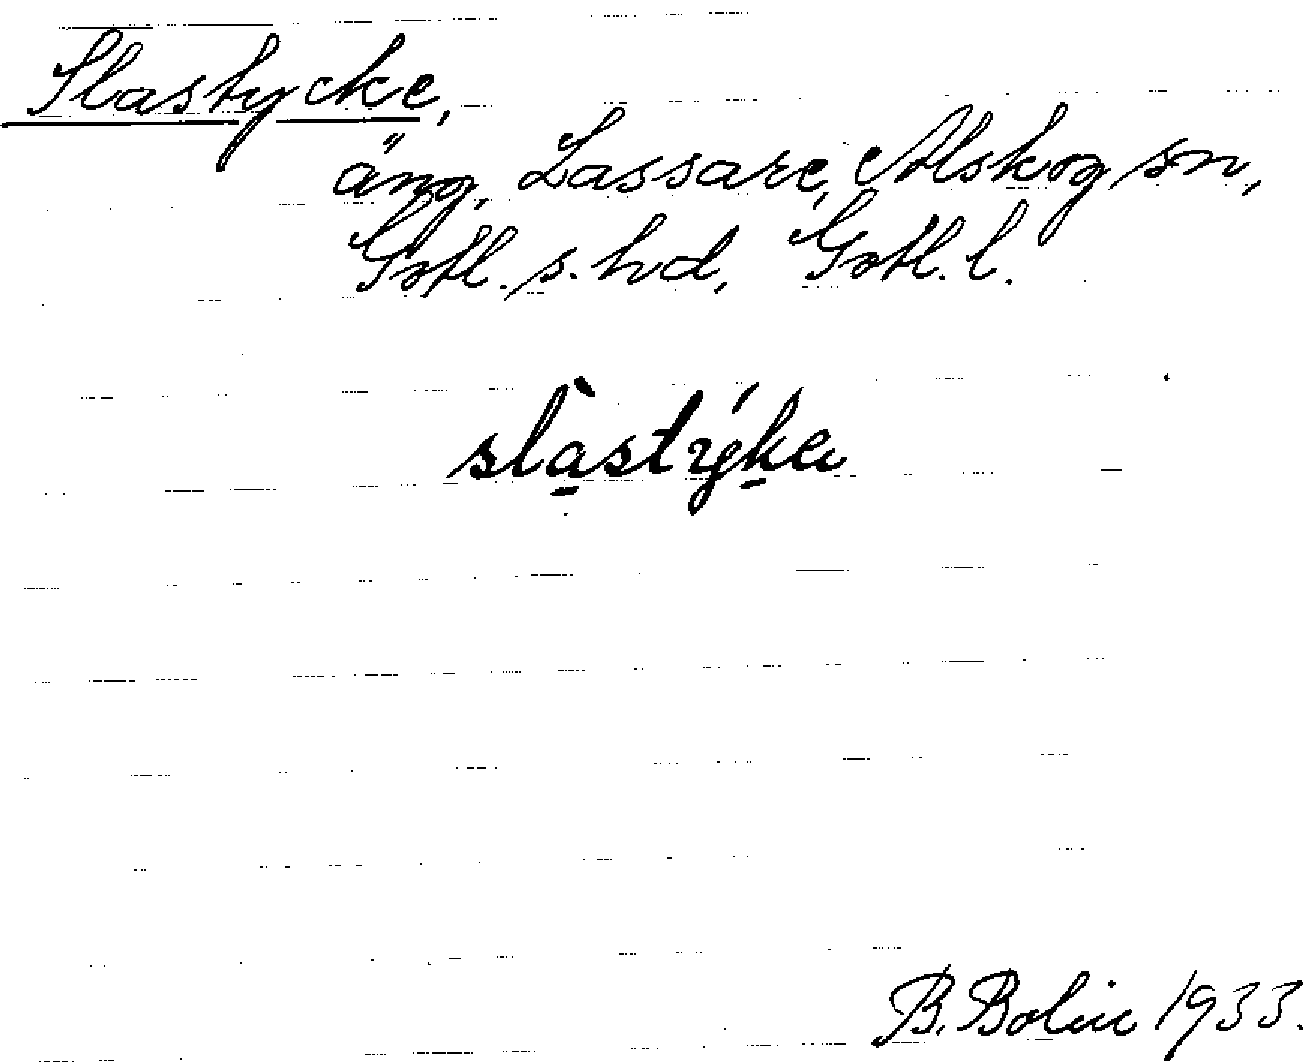 Slastycke,
äng, Lassare, Alskog sn,
Gotl. s. hd, Gotl. l.
slastyka
B. Bolin 1933.